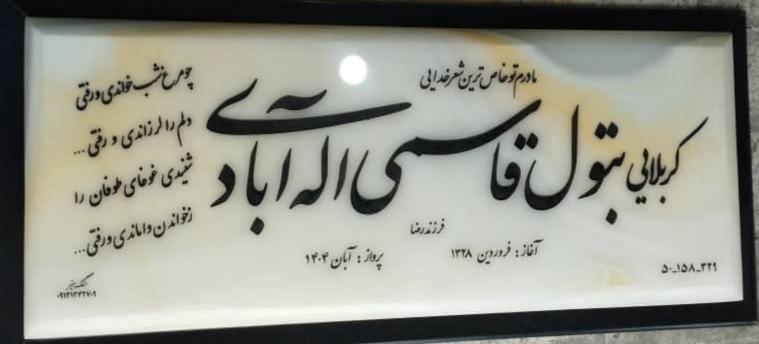 مادرم تو خاص ترین شعر خدایی
کربلایی بتول قاسمی اله آبادی
فرزند رضا
آغاز: فروردین ۱۳۲۸
پرواز: آبان ۱۴۰۴
چو مرغ شب خواندی و رفتی
دلم را لرزاندی و رفتی ...
شنیدی غوغای طوفان را
ز خواندن واماندی و رفتی ...
۵۰-۱۵۸-۳۲۹